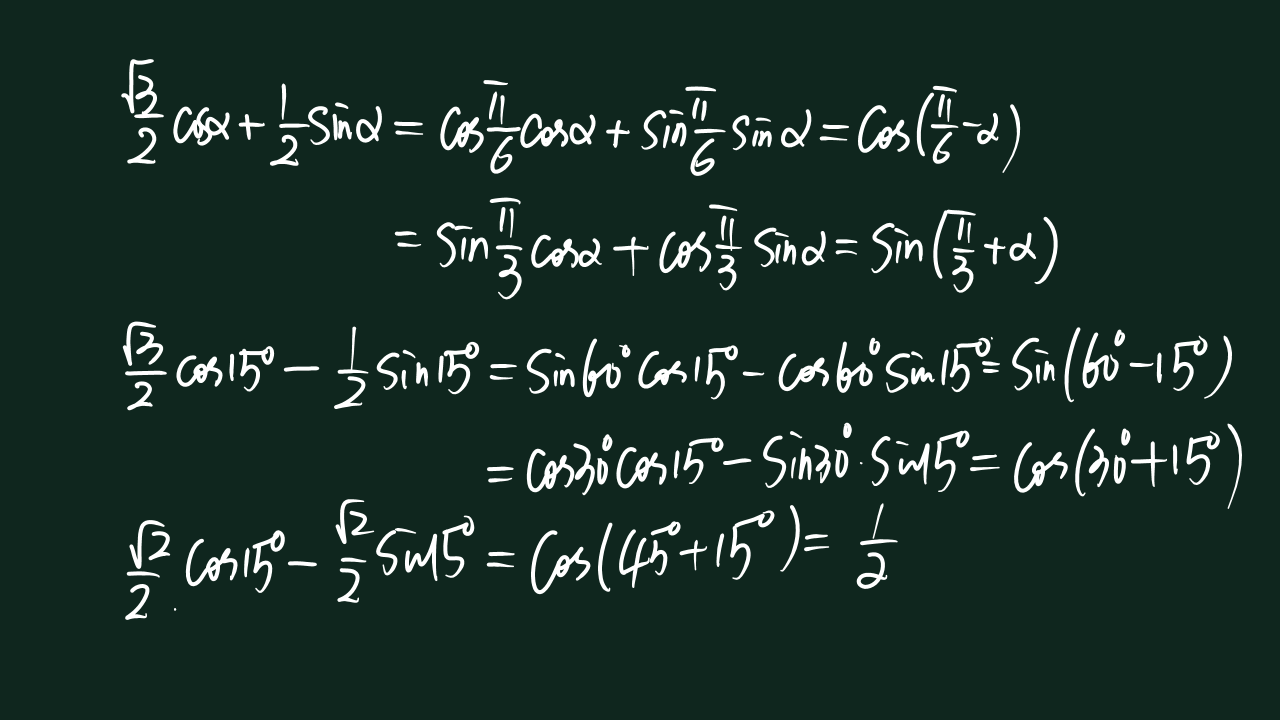 √3/2 cosα + 1/2 sinα = cos π/6 cosα + sin π/6 sinα = cos(π/6 - α)
= sin π/3 cosα + cos π/3 sinα = sin(π/3 + α)
√3/2 cos15° - 1/2 sin15° = sin60° cos15° - cos60° sin15° = sin(60° - 15°)
= cos30° cos15° - sin30° · sin15° = cos(30° + 15°)
√2/2 cos15° - √2/2 sin15° = cos(45° + 15°) = 1/2